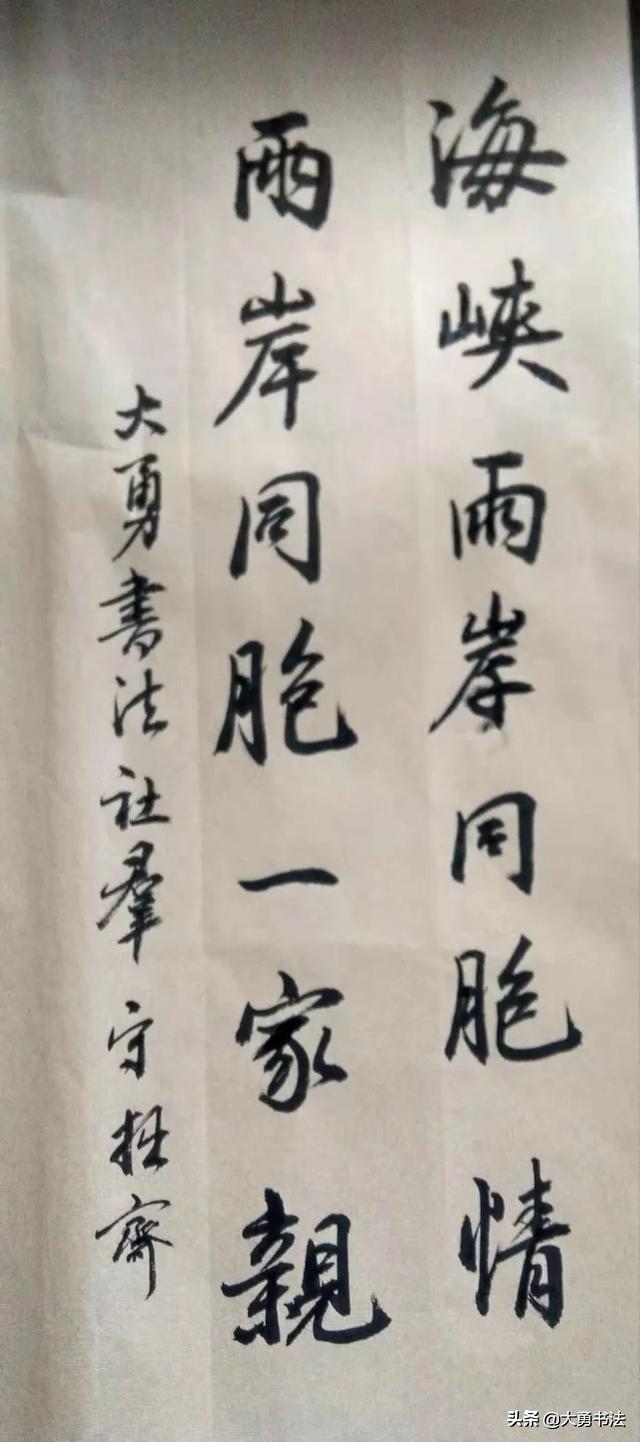 海峽兩岸同胞情
兩岸同胞一家親
大勇書法社羣 守拙齋
头条 @大勇书法